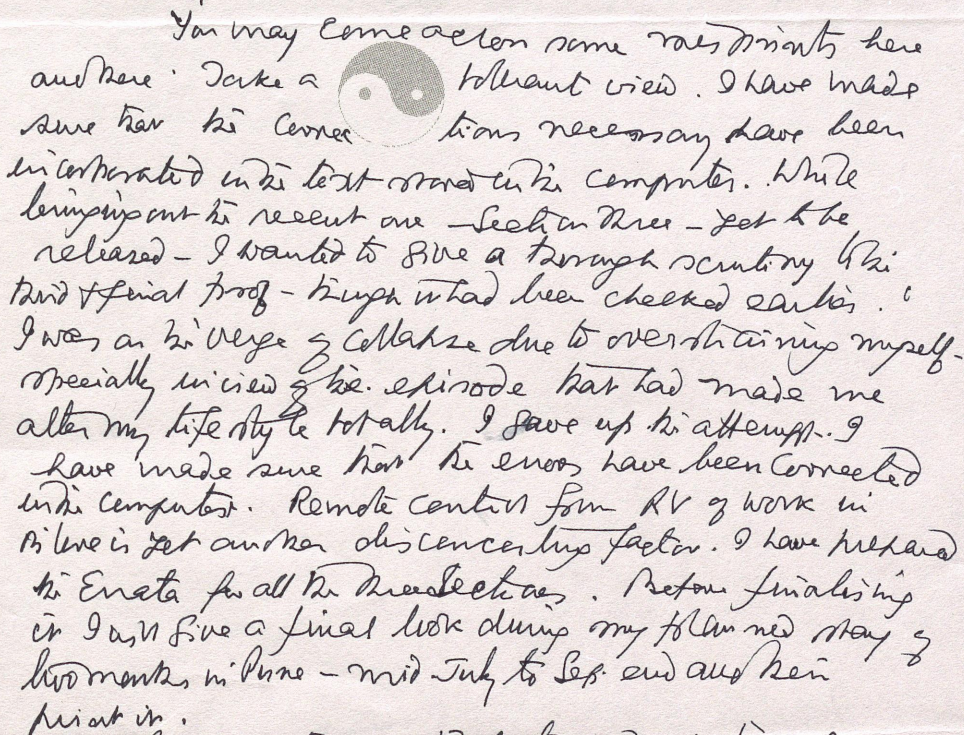 You may come across some misprints here
and there. Take a tolerant view. I have made
sure that the correc tions necessary have been
incorporated in the text stored in the computer. While
bringing out the recent one - Section Three - yet to be
released - I wanted to give a thorough scrutiny to the
third & final proof - though it had been checked earlier.
I was on the verge of collapse due to overstraining myself -
specially in view of the episode that had made me
alter my life style totally. I gave up the attempt. I
have made sure that the errors have been corrected
in the computer. Remote control from RV of work in
Pune is yet another disconcerting factor. I have prepared
the Errata for all the three Sections. Before finalising
it I will give a final look during my planned stay of
two months in Pune - mid July to Sep. end and then
print it.